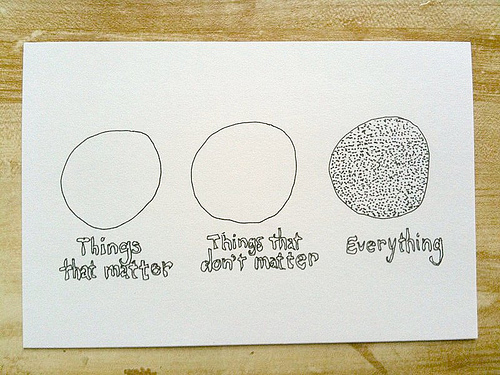 Things
that matter
Things that
don't matter
Everything